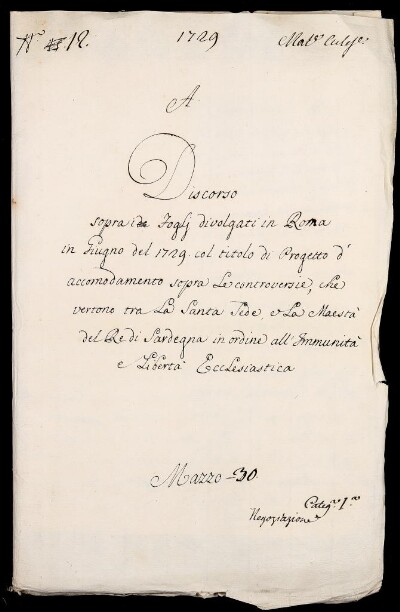 N.º 18. 1729 Mat.e Eccles.e
A
Discorso
sopra i due Foglj divolgati in Roma
in Giugno del 1729. col titolo di Progetto d'
accomodamento sopra le controversie, che
vertono tra La Santa Sede, e La Maestà
del Re di Sardegna in ordine all'Immunità
e Libertà Ecclesiastica
Mazzo 30.
Categ.a I.a
Negoziazione